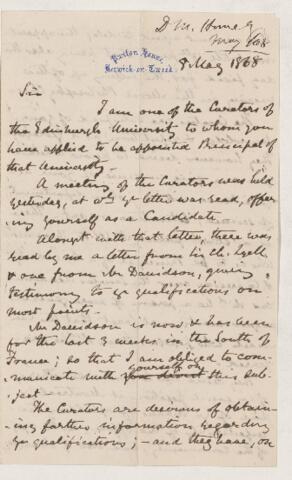 D. M. Home
May /68
Paxton House,
Berwick-on-Tweed.
8 May 1868
Sir
I am one of the Curators of
the Edinburgh University to whom you
have applied to be appointed Principal of
that University.
A meeting of the Curators was held
yesterday, at wh. yr letter was read, offer-
ing yourself as a Candidate.
Alongst with that letter, there was
read by me a letter from Sir Ch. Lyell
& one from Mr Davidson, giving
testimony to yr qualifications on
most points.
Mr Davidson is now & has been
for the last 3 weeks in the South of
France; so that I am obliged to com-
municate with yourself on
this sub-
ject -
The Curators are desirous of obtain-
ing farther information regarding
yr qualifications; - and they have, on